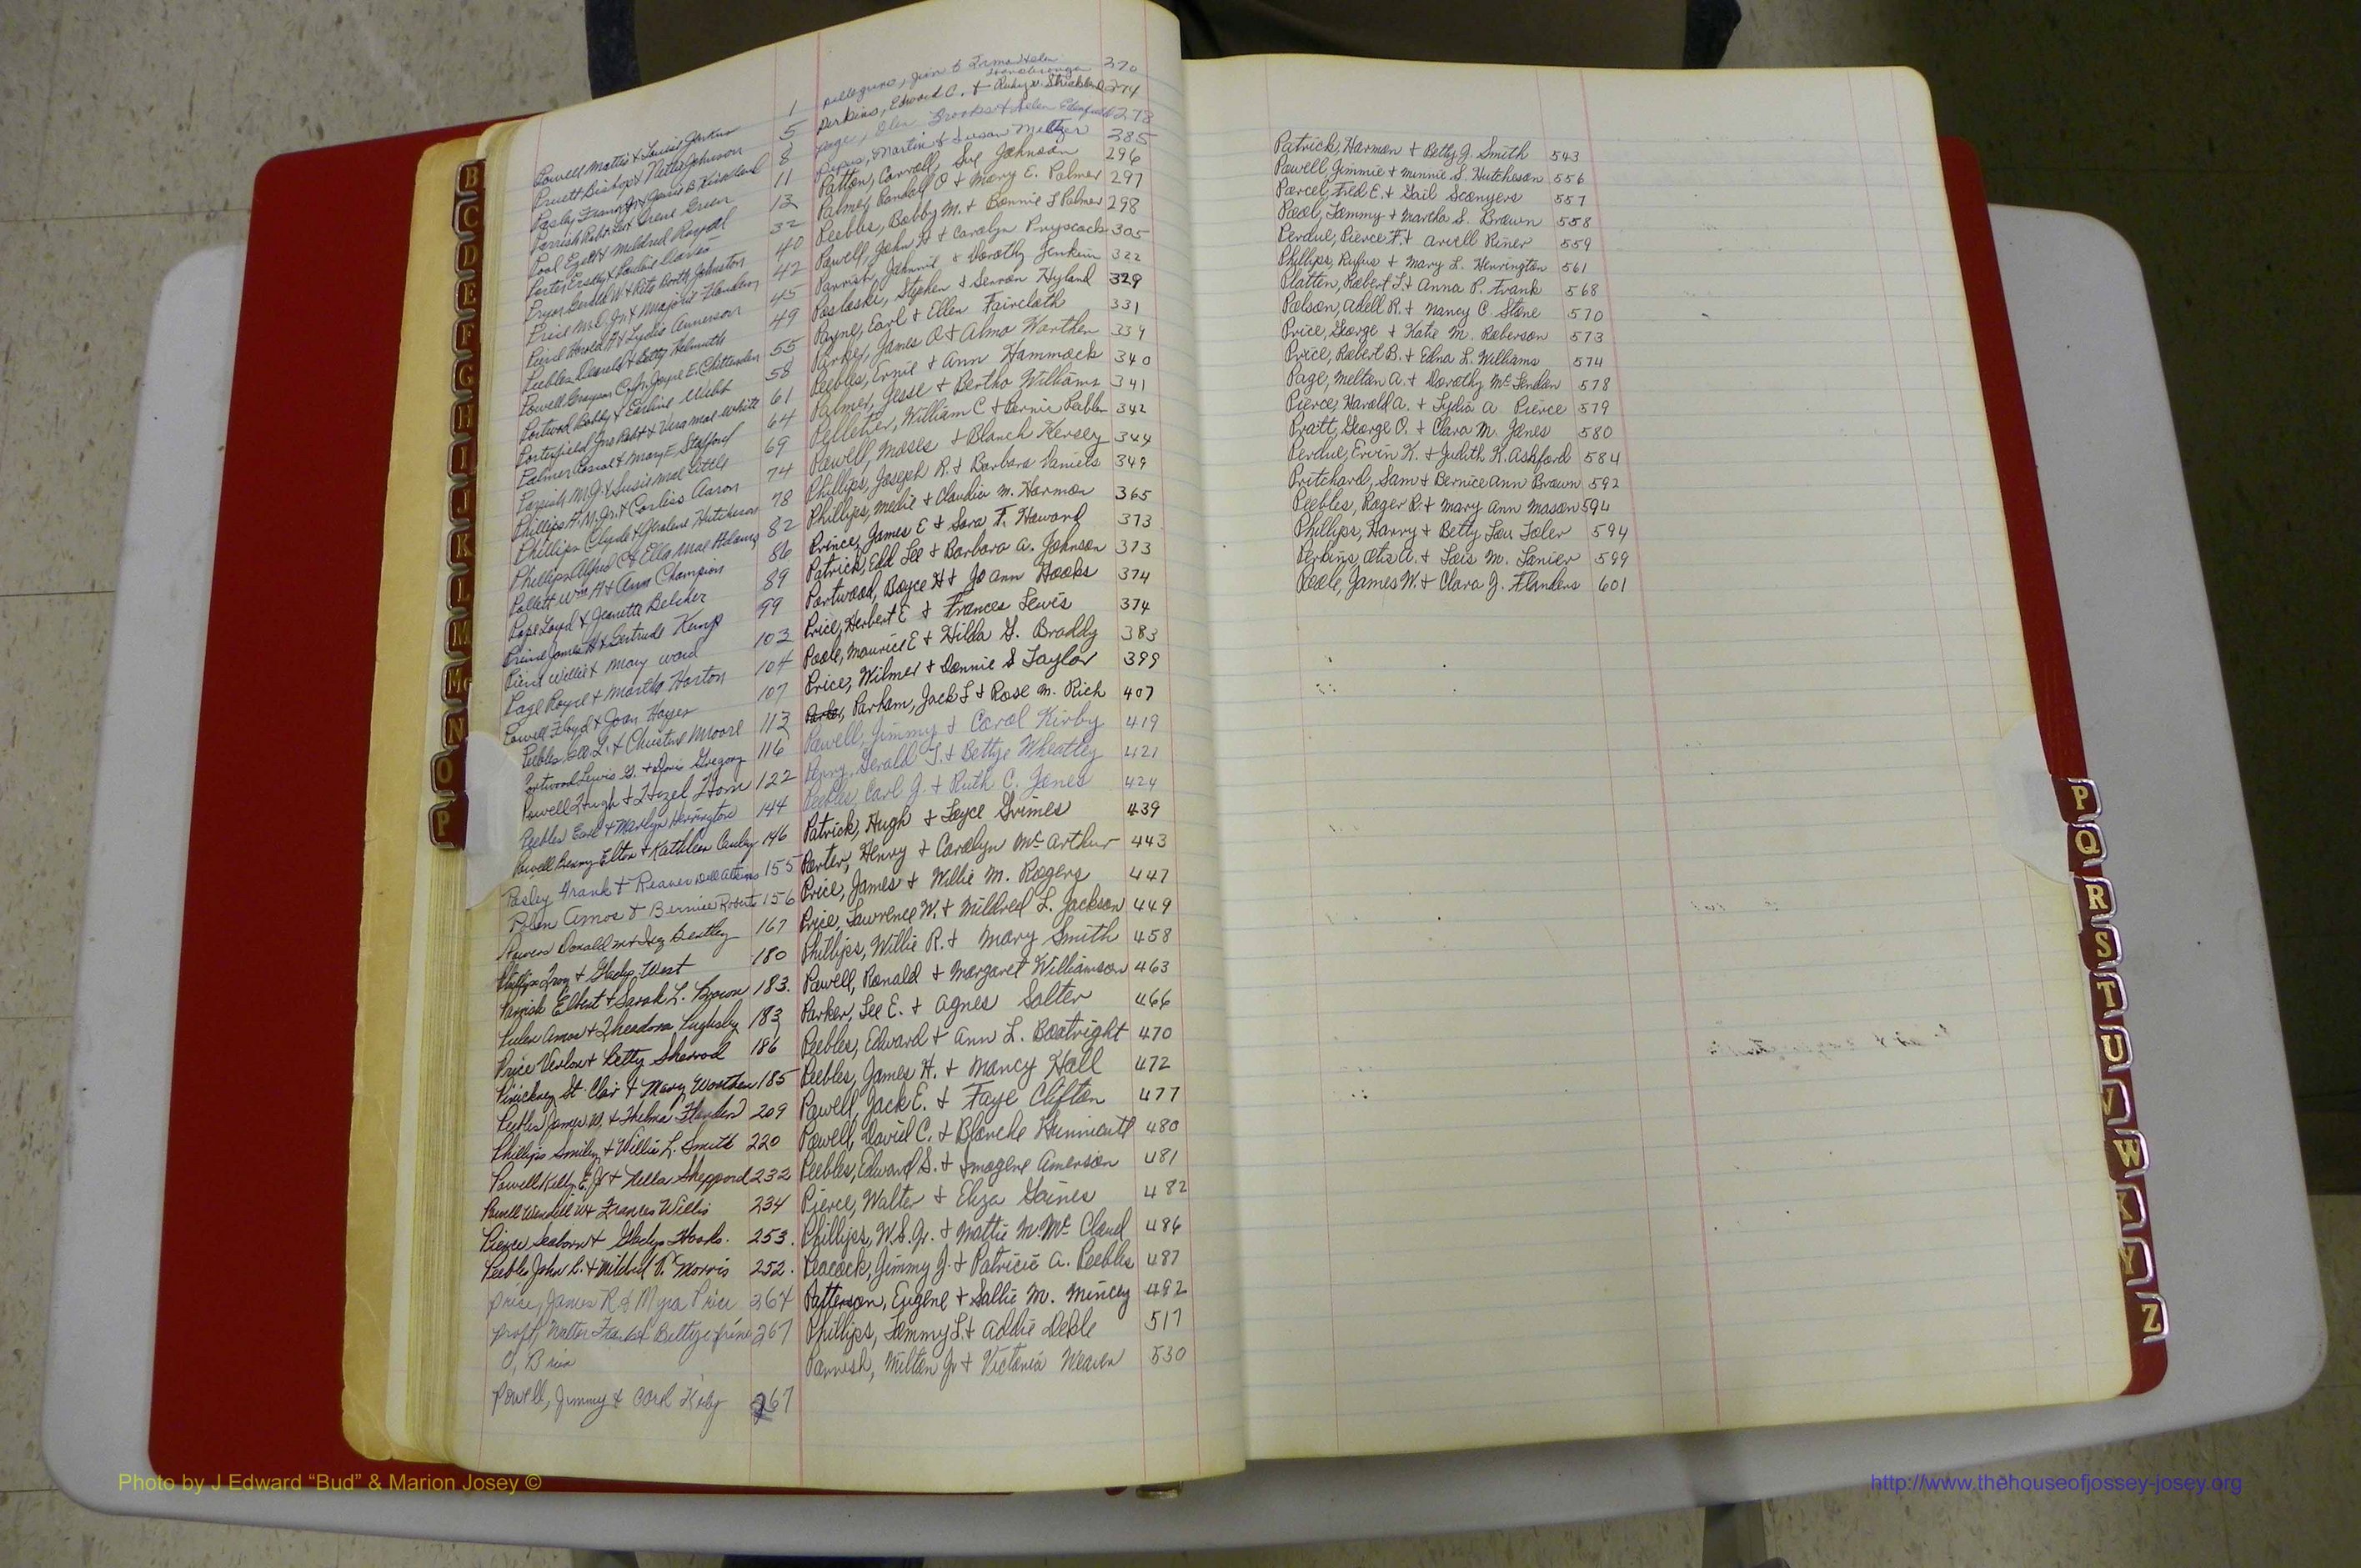 Powell Mattie & Louise Jenkins 1
Pruett Bishop & Nettie Johnson 5
Pasley Frank Jr & Janie B. Kirkland 8
Parrish Robt Lee & Irene Green 11
Pool Ezell & Mildred Royal 13
Porter Ersky & Pauline Davis 32
Pryor Gerald W & Rita Booth Johnston 40
Price M.O. Jr & Marjorie Flanders 42
Pierce Harold A & Lydia Amerson 45
Peebles Donald & Betty Helmuth 49
Powell Grayson C. Jr. Joyce E. Chittenden 55
Portwood Bobby & Earline Webb 58
Porterfield Jno Robt & Vera Mae White 61
Palmer & Mary E. Stafford 64
Parrish M.J. & Susie Mae Little 69
Phillips H.M. Jr. & Corliss Aaron 74
Phillips Clyde & Geraline Hutcheson 78
Phillips Alfred C & Ella Mae Adams 82
Pollett Wm H & Ann Champion 86
Pope Loyd & Jeanetta Belcher 89
Prince James H & Gertrude Kemp 99
Pierce Willie & Mary Ward 103
Page Royce & Martha Horton 104
Powell Floyd & Joan Hayes 107
Peebles Geo. L. & Christine Moore 113
Portwood Lewis G. & Doris Gregory 116
Powell Hugh & Hazel Horn 122
Peebles Earl & Marilyn Herrington 144
Powell Benny Elton & Kathleen Cauley 146
Pasley Frank & Reaver Dell Atkins 155
Polen Amos & Bernice Roberts 156
Powers Donald & Bentley 167
Phillips Troy & Gladys West 180
Parrish Elbert & Sarah L. Byron 183.
Pulen Amos & Theodora Pughsley 183
Price Verlon & Betty Sherrod 186
Pinickney St. Clair & Mary Worthen 185
Peebles James W. & Thelma Flanders 209
Phillips Smiley & Willie L. Smith 220
Powell Kelly E. Jr & Nella Sheppard 232
Powell Wendell W & Frances Willis 234
Pierce Seaborn & Gladys Hooks. 253.
Peebles John C. & Mildred V. Morris 252.
Price, James R & Myra Price 264
Proft, Walter Frank & Bettye Irene 267
O, Brien
Powell, Jimmy & Carol Kirby 267
Pellegrino, Jim & Irma Helen 270
Perkins, Edward C. & Ruby V. Strickland 274
Page, Olen Brooks & Helen Edenfield 278
Pupus, Martin & Susan Meltzer 285
Patton, Carroll, Sue Johnson 296
Palmer, Randall O & Mary E. Palmer 297
Peebles, Bobby M. & Bonnie L Palmer 298
Powell, John H & Carolyn Pryscock 305
Parrish, Johnnie & Dorothy Jenkins 322
Posloski, Stephen & Sharon Hyland 329
Payne, Earl & Ellen Faircloth 331
Parker, James O & Alma Worthen 339
Peebles, Ernie & Ann Hammock 340
Palmer, Jesse & Bertha Williams 341
Pelletier, William C & Bernie Peebles 342
Powell, Moses & Blanch Kersey 344
Phillips, Joseph R. & Barbara Daniels 349
Phillips, Melie & Claudia M. Harmon 365
Prince, James E & Sara F. Howard 373
Patrick, Edd Lee & Barbara A. Johnson 373
Portwood, Boyce H & Jo Ann Hooks 374
Price, Herbert E & Frances Lewis 374
Poole, Maurice E & Hilda G. Braddy 383
Price, Wilmer & Donnie S Taylor 399
Parham, Jack L & Rose M. Rich 407
Powell, Jimmy & Carol Kirby 419
Perry, Gerald T. & Bettye Wheatley 421
Peebles, Carl J. & Ruth C. Jones 424
Patrick, Hugh & Loyce Grimes 439
Porter, Henry & Carolyn McArthur 443
Price, James & Willie M. Rogers 447
Price, Lawrence W. & Mildred L. Jackson 449
Phillips, Willie R. & Mary Smith 458
Powell, Ronald & Margaret Williamson 463
Parker, Lee E. & Agnes Salter 466
Peebles, Edward & Ann L. Boatright 470
Peebles, James H. & Nancy Hall 472
Powell, Jack E. & Faye Clifton 477
Powell, David C. & Blanche Hunnicutt 480
Peebles, Edward S. & Imogene Amerson 481
Pierce, Walter & Eliza Gaines 482
Phillips, W.S. Jr. & Mattie M. McCloud 486
Peacock, Jimmy J. & Patricia A. Peebles 487
Patterson, Eugene & Sallie M. Mincey 492
Phillips, Tommy L. & Addie Dekle 517
Parrish, Milton Jr & Victoria Weaver 530
Patrick, Harmon & Betty J. Smith 543
Powell, Jimmie & Minnie S. Hutcheson 556
Parcel, Fred E. & Gail Scanyers 557
Pool, Tommy & Martha S. Brown 558
Perdue, Pierce F. & Averll Riner 559
Phillips, Rufus & Mary L. Henrington 561
Platten, Robert L. & Anna P. Frank 568
Polson, Adell R. & Nancy C. Stone 570
Price, George & Katie M. Roberson 573
Price, Robert B. & Edna L. Williams 574
Page, Melton A. & Dorothy McLendon 578
Pierce, Harold A. & Lydia A. Pierce 579
Pratt, George O. & Clara M. Jones 580
Perdue, Ervin K. & Judith K. Ashford 584
Pritchard, Sam & Bernice Ann Brown 592
Peebles, Roger R. & Mary Ann Mason 594
Phillips, Harry & Betty Lou Toler 594
Perkins, Otis A. & Lois M. Lanier 599
Poole, James W. & Clara J. Flanders 601
B
C
D
E
F
G
H
I
J
K
L
M
Mc
N
O
P
P
Q
R
S
T
U
V
W
X
Y
Z
Photo by J Edward “Bud” & Marion Josey ©
http://www.thehouseofjossey-josey.org